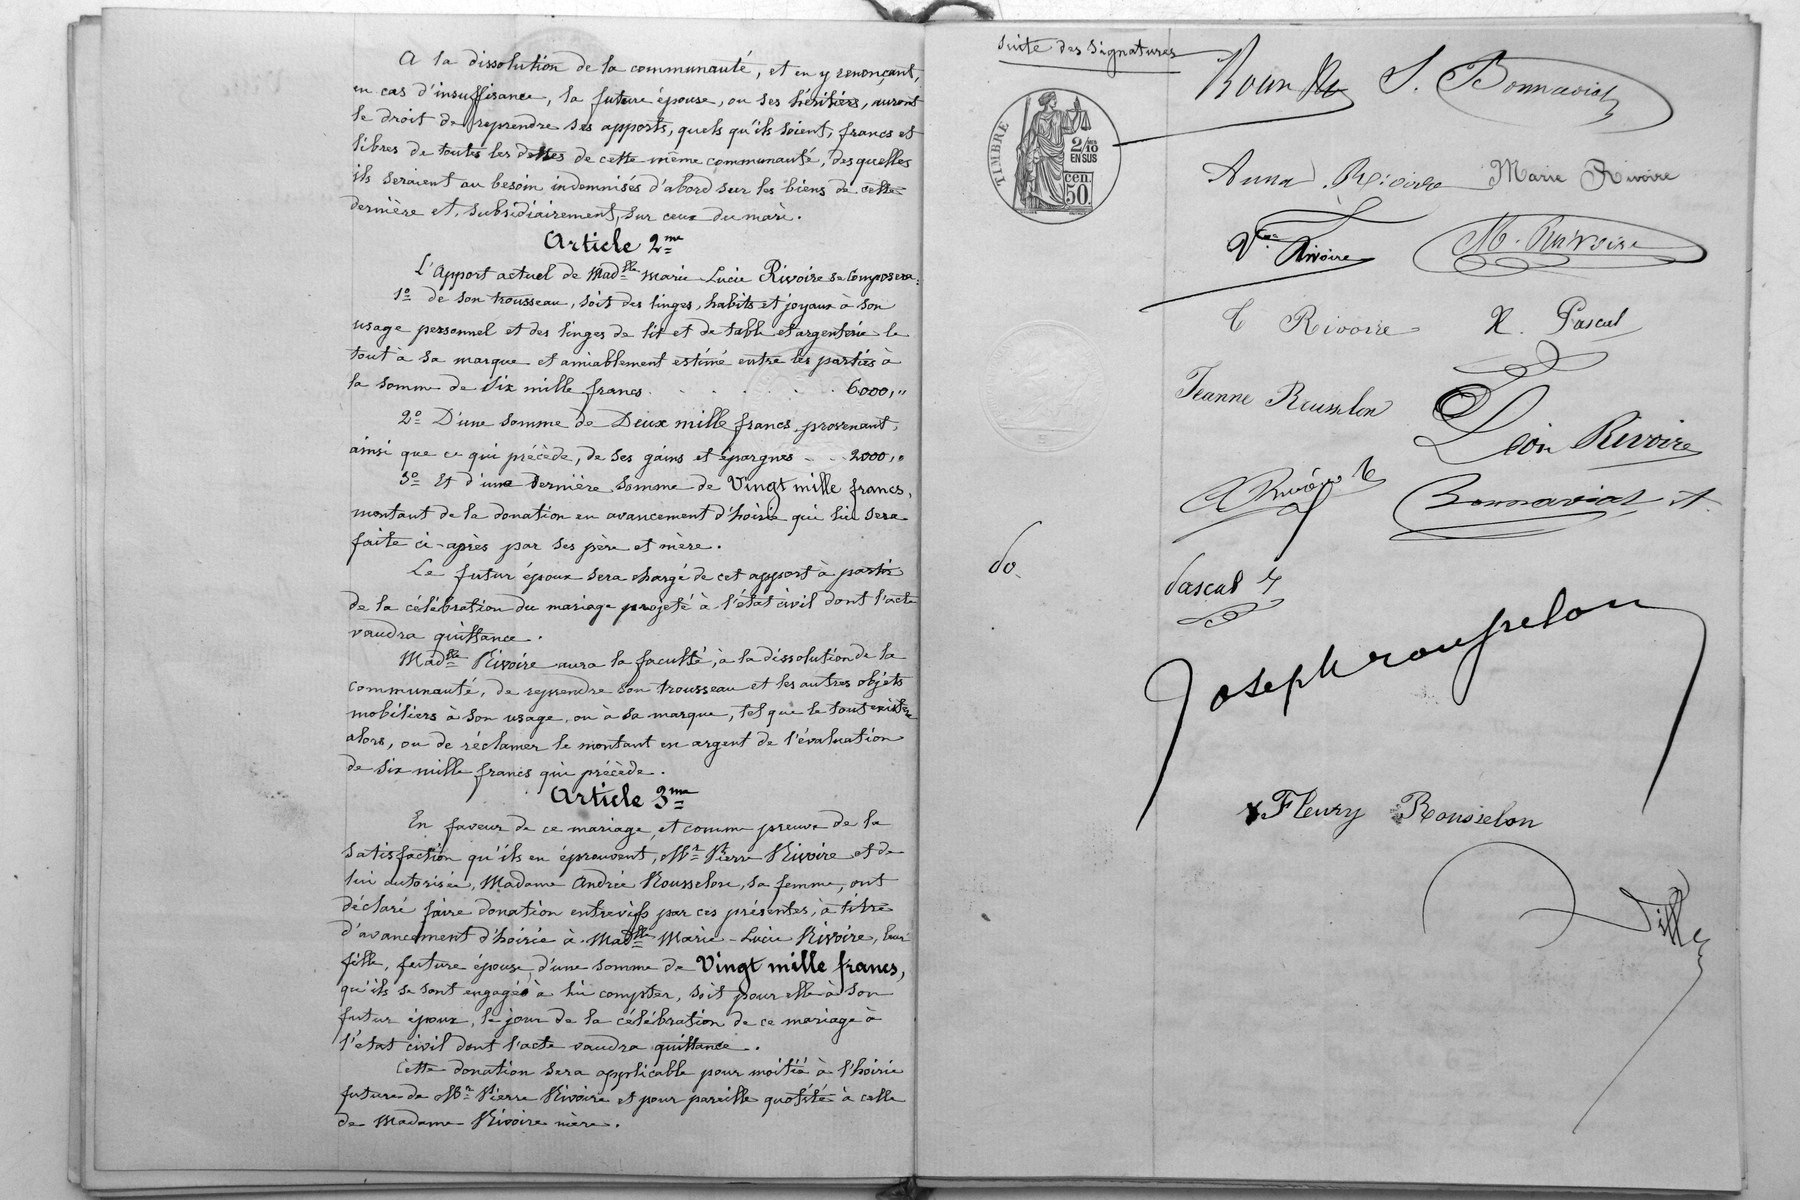 A la dissolution de la communauté, et en y renonçant,
en cas d'insuffisance, la future épouse, ou ses héritiers, auront
le droit de reprendre ses apports, quels qu'ils soient, francs et
libres de toutes les dettes de cette même communauté, desquelles
ils seraient au besoin indemnisés d'abord sur les biens de cette
dernière et, subsidiairement, sur ceux du mari.
Article 2me
L'Apport actuel de Madelle Marie Lucie Rivoire se Composera:
1o de son trousseau, soit des linges, habits et joyaux à son
usage personnel et des linges de lit et de table et argenterie le
tout à sa marque et amiablement estimé entre les parties à
la somme de Six mille francs . . . . . . 6000,"
2o D'une somme de Deux mille francs, provenant,
ainsi que ce qui précède, de ses gains et épargnes . . 2000,"
3o Et d'une dernière somme de Vingt mille francs,
montant de la donation en avancement d'hoirie qui lui sera
faite ci-après par ses père et mère.
Le futur époux sera chargé de cet apport à partir
de la célébration du mariage projeté à l'état civil dont l'acte
vaudra quittance.
Madelle Rivoire aura la faculté, à la dissolution de la
communauté, de reprendre son trousseau et les autres objets
mobiliers à son usage, ou à sa marque, tel que le tout existera
alors, ou de réclamer le montant en argent de l'évaluation
de six mille francs qui précède.
Article 3me
En faveur de ce mariage, et comme preuve de la
satisfaction qu'ils en éprouvent, Mr Pierre Rivoire et de
lui autorisée, Madame Andrée Rousselon, sa femme, ont
déclaré faire donation entrevifs par ces présentes, à titre
d'avancement d'hoirie à Madelle Marie-Lucie Rivoire, leur
fille, future épouse, d'une somme de Vingt mille francs,
qu'ils se sont engagés à lui compter, soit pour elle à son
futur époux, le jour de la célébration de ce mariage à
l'état civil dont l'acte vaudra quittance.
Cette donation sera applicable pour moitié à l'hoirie
future de Mr Pierre Rivoire et pour pareille quotité à celle
de Madame Rivoire mère.
Suite des signatures
TIMBRE
2/10
EN SUS
cen.
50.
J. Bonnaviat
Anna Rivoire Marie Rivoire
Vve Rivoire M. Rivoire
C Rivoire X. Pascal
Jeanne Rousselon
Léon Rivoire
A Rivoire Bonnaviat A
do.
Pascal J
Joseph rousselon
Fleury Rousselon